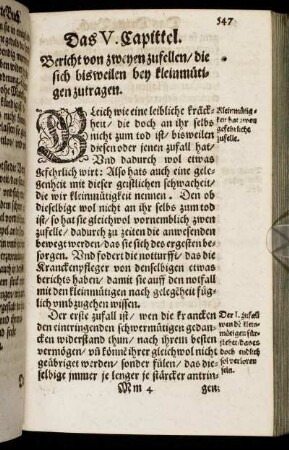 547
Das V. Capittel.
Bericht von zweyen zufellen/ die
sich bisweilen bey kleinmüti-
gen zutragen.
GLeich wie eine leibliche kräck-
heit/ die doch an ihr selbs
nicht zum tod ist/ bisweilen
diesen oder jenen zufall hat/
Vnd dadurch wol etwas
gefehrlich wirt: Also hats auch eine gele-
genheit mit dieser geistlichen schwacheit/
die wir kleinmütigkeit nennen. Den ob
dieselbige wol nicht an ihr selbs zum tod
ist/ so hat sie gleichwol vornemblich zwen
zufelle/ dadurch zu zeiten die anwesenden
bewegt werden/ das sie sich des ergesten be-
sorgen. Vnd fodert die notturfft/ das die
Kranckenpfleger von denselbigen etwas
berichts haben/ damit sie auff den notfall
mit den kleinmütigen nach gelegēheit füg-
lich vmbzugehen wissen.
Der erste zufall ist/ wen die krancken
den eintringenden schwermütigen gedan-
cken widerstand thun/ nach ihrem besten
vermögen/ vñ könnē ihrer gleichwol nicht
geübriget werden/ sonder fülen/ das die-
selbige jmmer je lenger je stärcker antrin-
Mm 4 gen:
Kleinmütig-
keit hat zwen
gefehrliche
zufelle.
Der 1. zufall
wen die klein-
mütigen für-
doch endlich
sol verloren
sein.